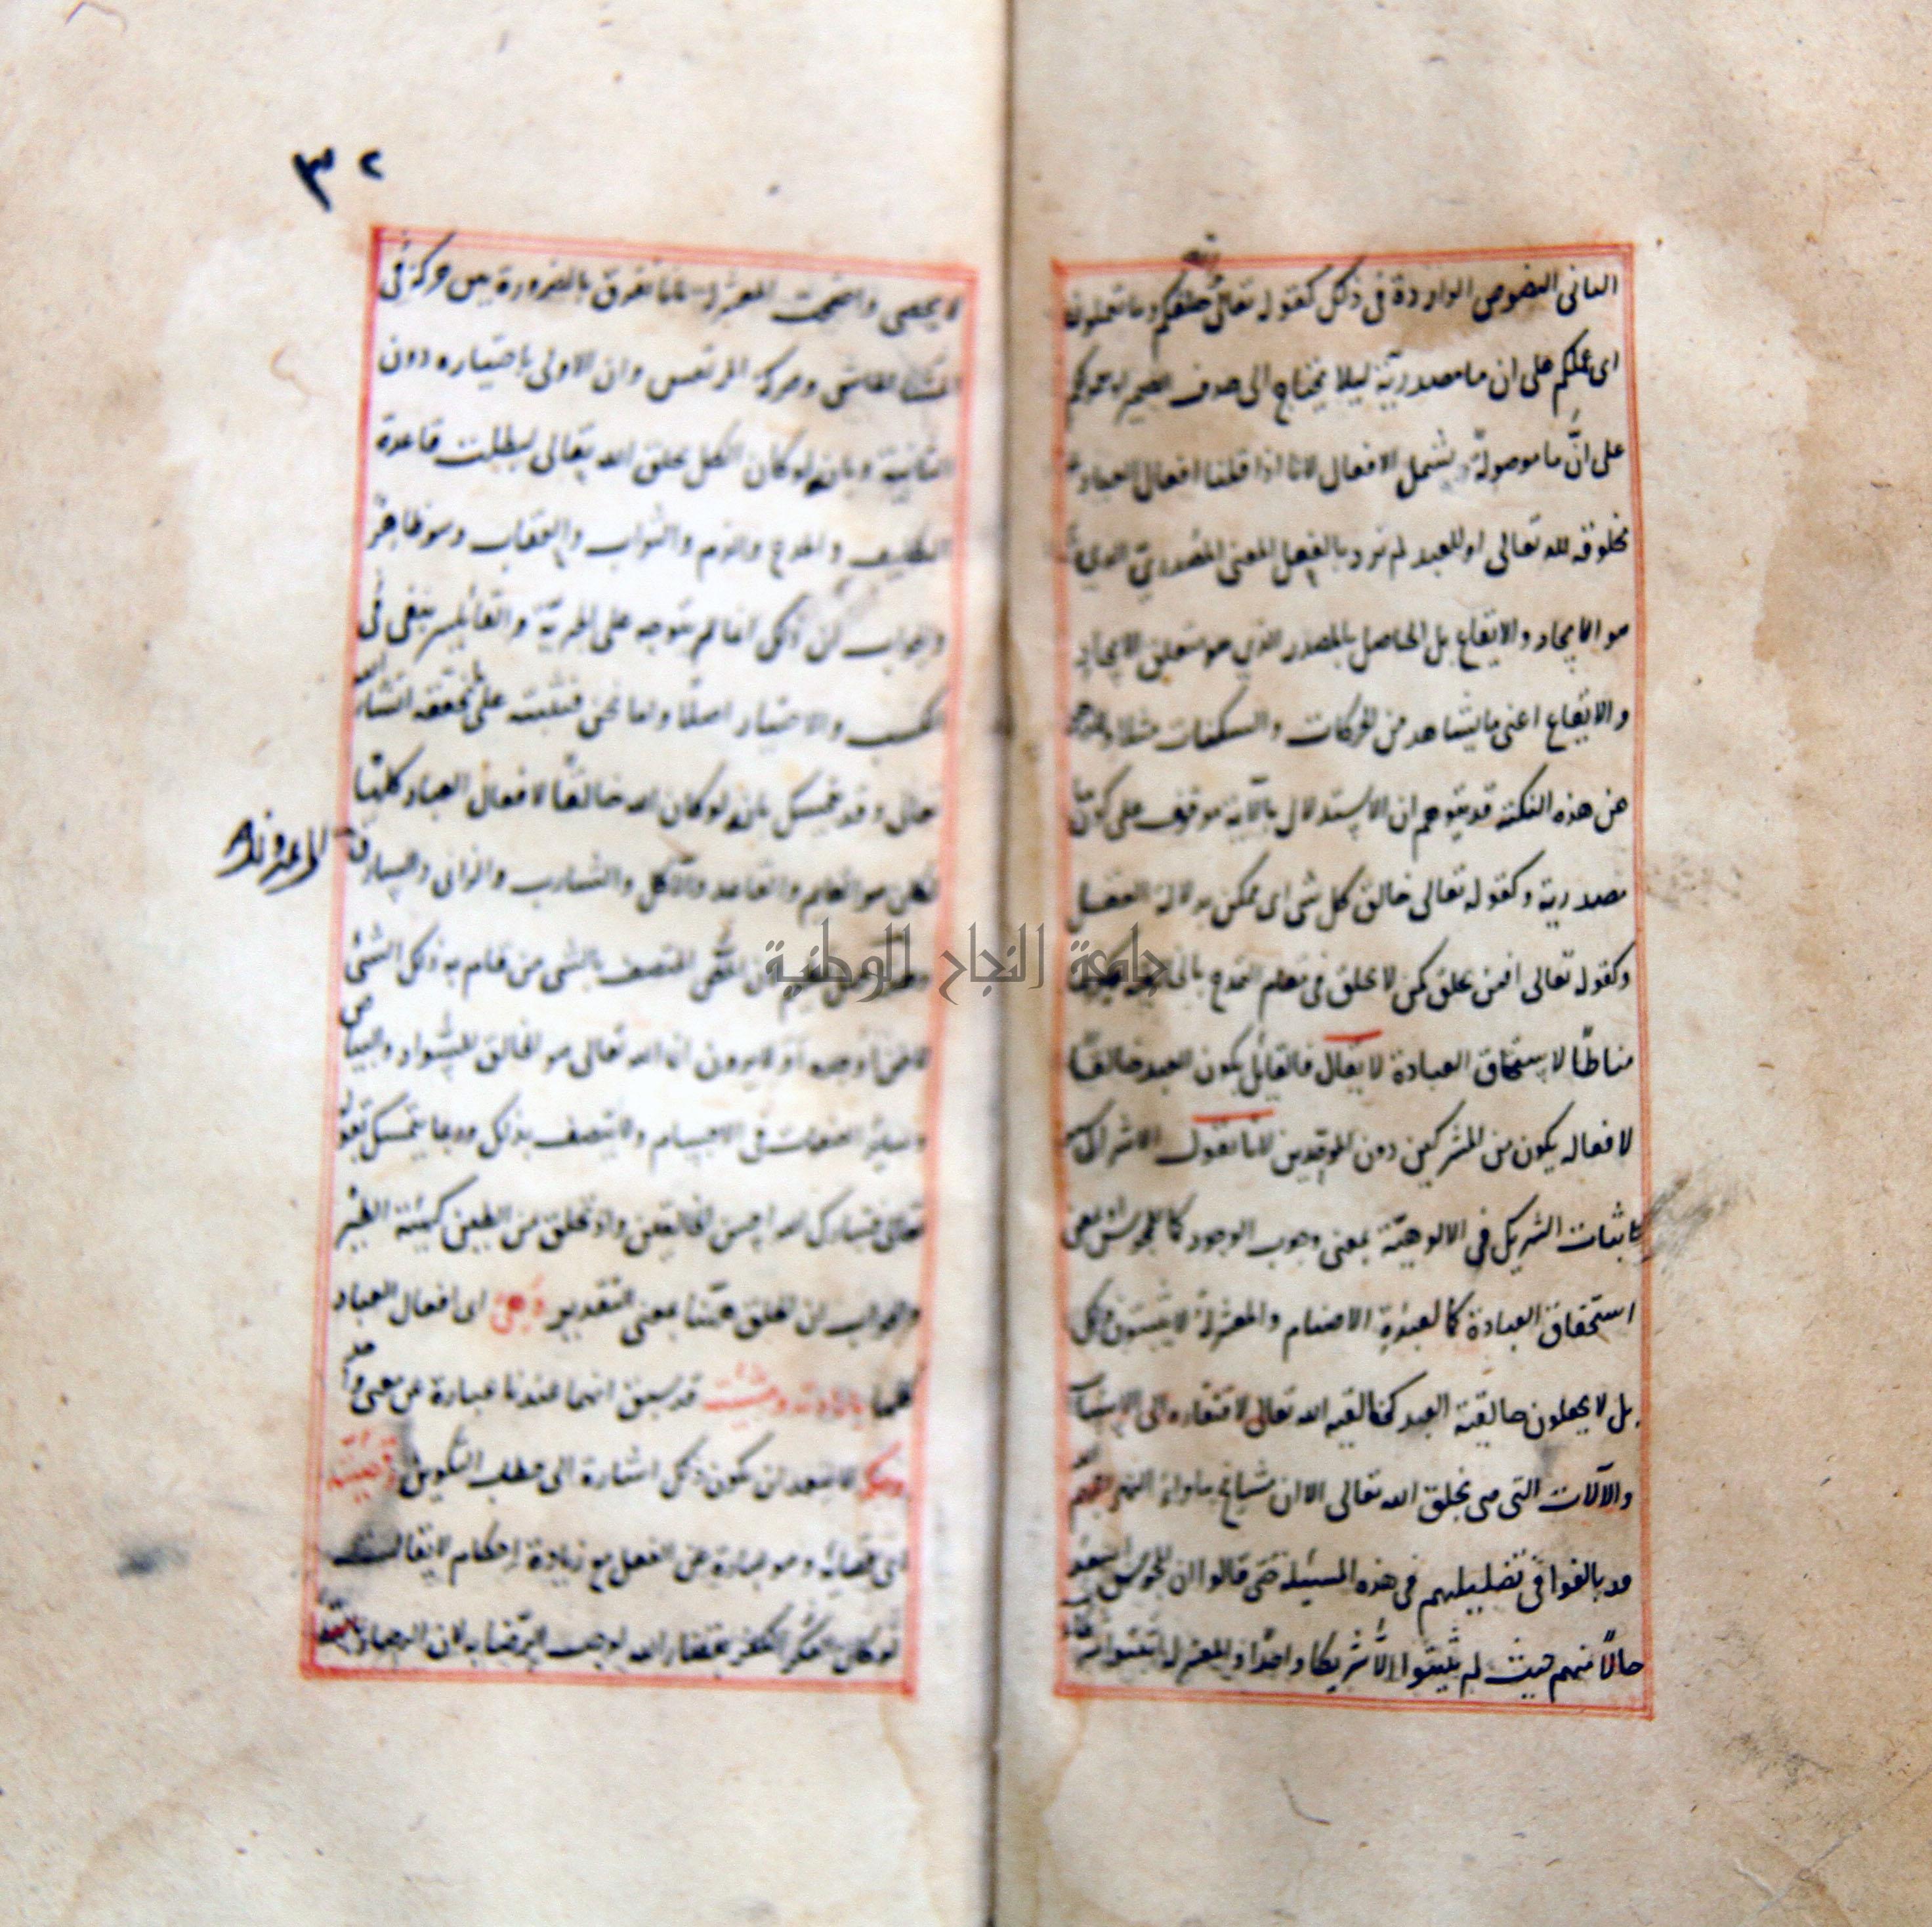 الثانى النصوص الواردة فى ذلك كقوله تعالى خلقكم وما تعملون
اى عملكم على ان ما مصدرية ليلا يحتاج الى حذف الضمير او معمولكم
على انَّ ما موصولة ويشمل الافعال لانا اذا قلنا افعال العباد
مخلوقه لله تعالى او للعبد لم نرد بالفعل المعنى المصدري الذي
هو الايجاد والايقاع بل الحاصل بالمصدر الذي هو متعلق الايجاد
والايقاع اعنى ما يشاهد من الحركات والسكنات مثلا
عن هذه النكتة قد يتوهم ان الاستدلال بالآية موقوف على كون ما
مصدرية وكقوله تعالى خالق كل شى اى ممكن بدلالة العقل
وكقوله تعالى افمن يخلق كمن لا يخلق فى مقام التمدح
مناطًا لاستحقاق العبادة لا يقال فالقائل بكون العبد خالقًا
لافعاله يكون من المشركين دون الموحدين لانا نقول الاشراك
اثبات الشريك فى الالوهيّة بمعنى وجوب الوجود كما للمجوس او بمعنى
استحقاق العبادة كما لعبدة الاصنام والمعتزلة لا يثبتون ذلك
بل لا يجعلون خالقية العبد كخالقية الله تعالى لافتقاره الى الاسباب
والآلات التى هى بخلق الله تعالى الا ان مشايخ ما وراء النهر
قد بالغوا فى تضليلهم فى هذه المسئلة حتى قالوا ان المجوس اسعد
حالاً منهم حيث لم يثبتوا الاّ شريكا واحدًا والمعتزلة اثبتوا شركاء
٣٢
لا يحصى واحتجت المعتزلة بانا نفرق بالضرورة بين حركة
الماشى وحركة المرتعش وان الاولى باختياره دون
الثانية وبانه لو كان الكل بخلق الله تعالى لبطلت قاعدة
التكليف والمدح والذم والثواب والعقاب وهو ظاهر
والجواب ان ذلك انما يتوجه على الجبرية والقائلين بنفى
الكسب والاختيار اصلا واما نحن فنثبته على ما نحققه ان شاء الله
تعالى وقد يتمسك بانه لو كان الله خالقًا لافعال العباد
لكان هو القائم والقاعد والآكل والشارب والزانى والسارق
الى غير ذلك
المتصف بالشى من قام به ذلك الشئ
لا من اوجده او لا يرون ان الله تعالى هو الخالق للسواد والبياض
وسائر الصفات فى الاجسام ولا يتصف بذلك وربما يتمسك بقوله
تعالى فتبارك الله احسن الخالقين واذ تخلق من الطين كهيئة الطير
والجواب ان الخلق هنا بمعنى التقدير وهى اى افعال العباد
كلها بارادته ومشيئته قد سبق انهما عندنا عبارة عن معنى واحد
وحكمه لا يبعد ان يكون ذلك اشارة الى خطاب التكوين وقضيته
اى قضائه وهو عبارة عن الفعل مع زيادة احكام لا يقال
لو كان الكفر بقضاء الله لوجب الرضا به لان الرضاء
جامعة النجاح الوطنية